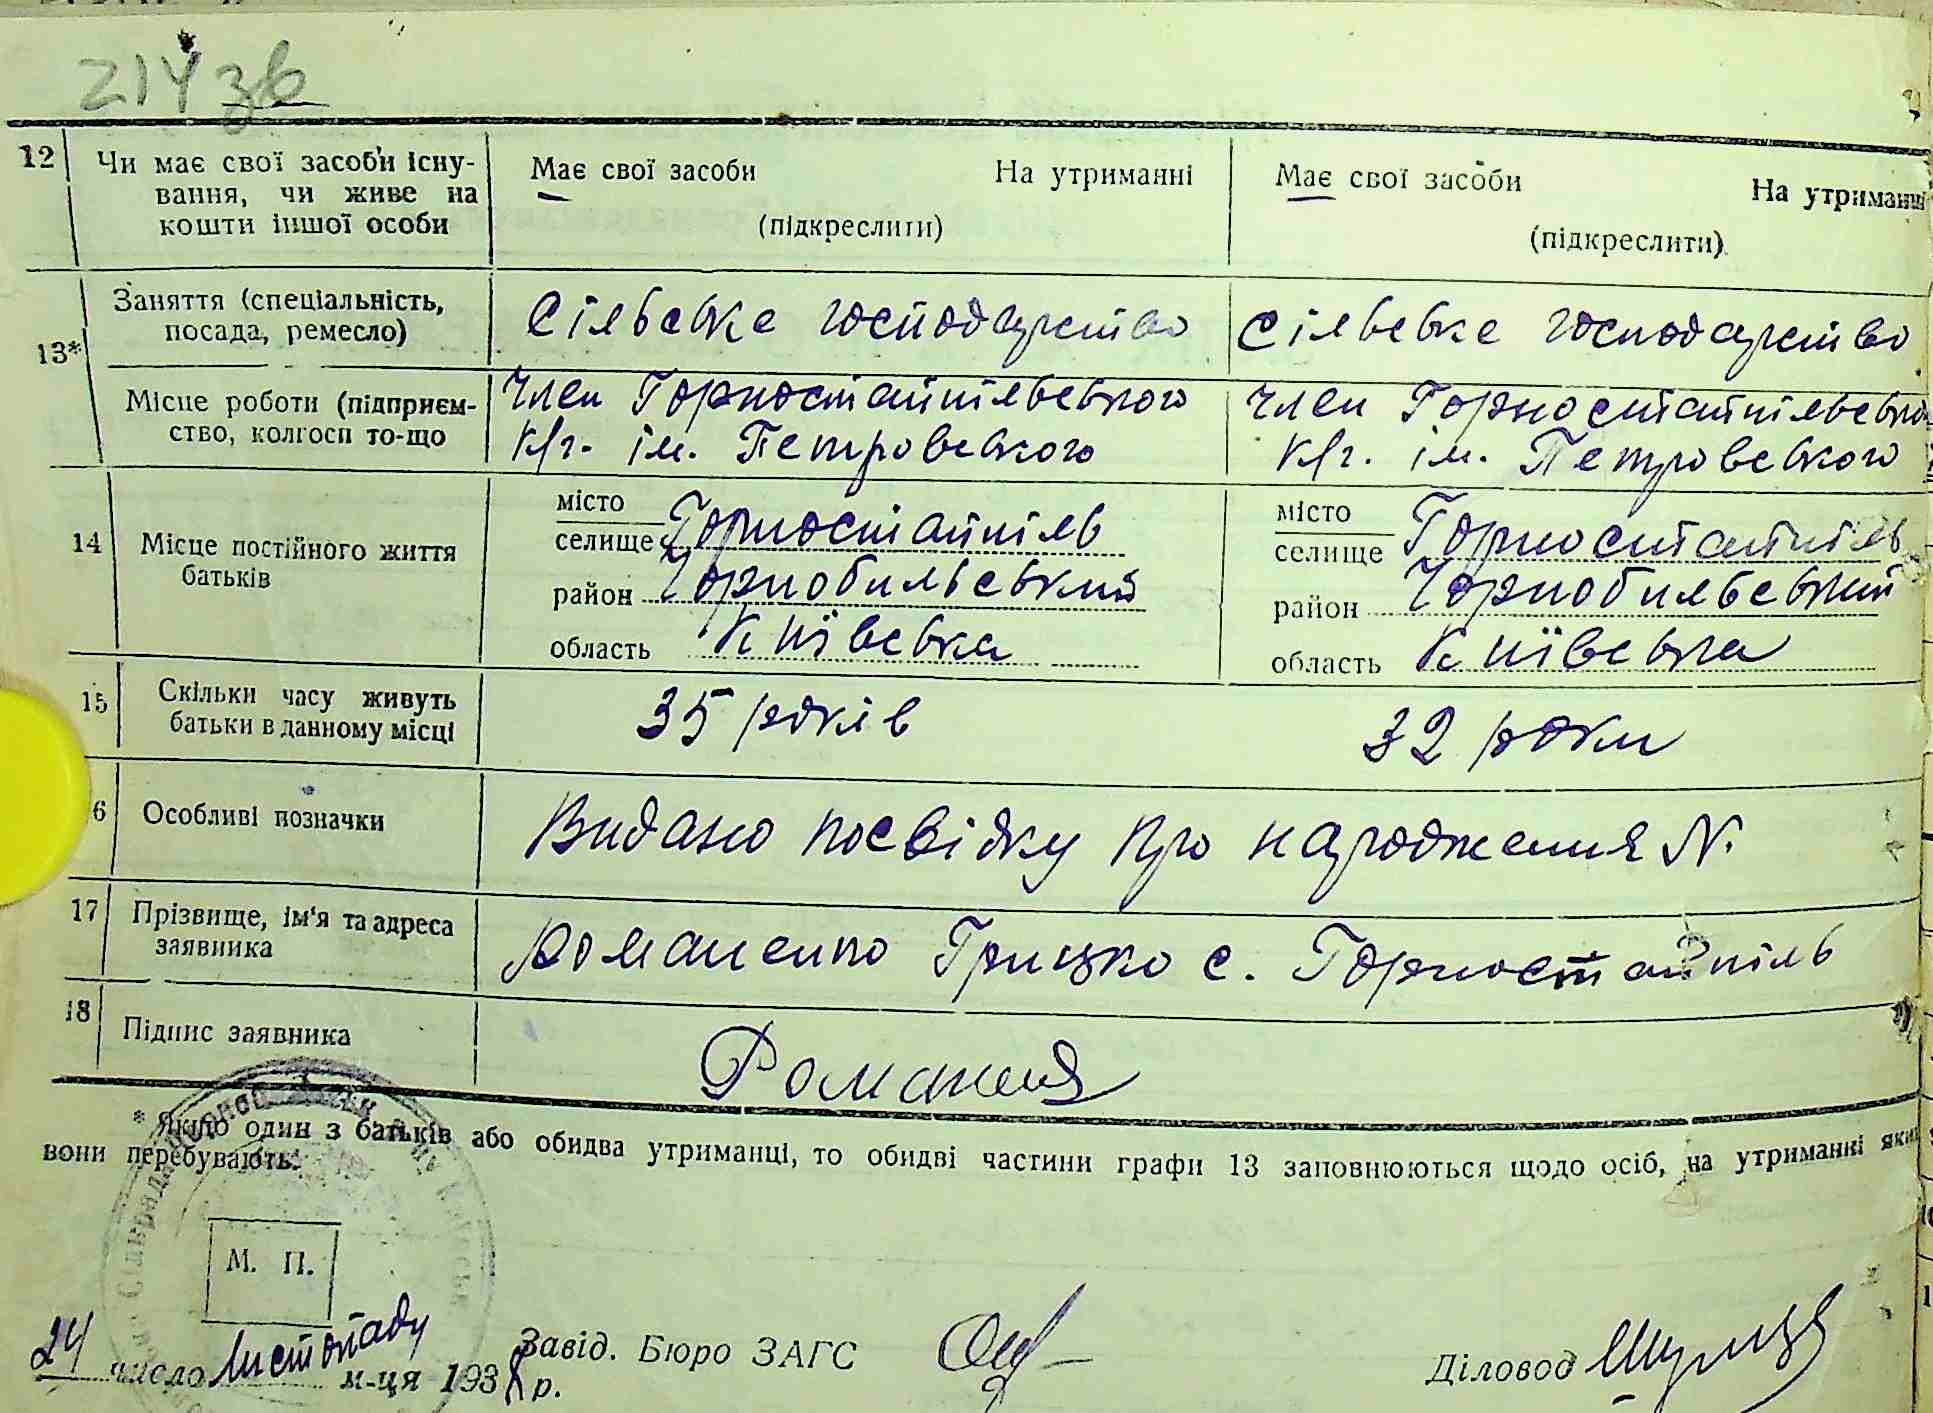 214 зв
12 Чи має свої засоби існу-
вання, чи живе на
кошти іншої особи
Має свої засоби На утриманні
(підкреслити)
Має свої засоби На утриманні
(підкреслити)
13*
Заняття (спеціальність,
посада, ремесло)
Сільське господарство
Сільське господарство
Місце роботи (підприєм-
ство, колгосп то-що
Член Горностайпільського
К/г. ім. Петровського
Член Горностайпільсько
К/г. ім. Петровського
14 Місце постійного життя
батьків
місто
селище Горностайпіль
район Чорнобильський
область Київська
місто
селище Горностайпіль
район Чорнобильський
область Київська
15 Скільки часу живуть
батьки в данному місці
35 років
32 роки
6 Особливі позначки
Видано посвідку про народження N.
17 Прізвище, ім'я та адреса
заявника
Романенко Грицько с. Горностайпіль
18 Підпис заявника
* Якщо один з батьків або обидва утриманці, то обидві частини графи 13 заповнюються щодо осіб, на утриманні яких
вони перебувають.
М. П.
24 число Листопаду м-ця 193 р.
Завід. Бюро ЗАГС
Діловод